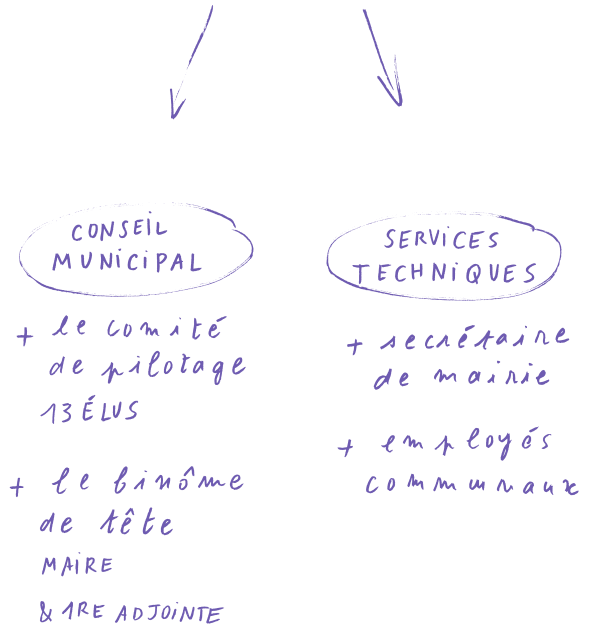 CONSEIL
MUNICIPAL
+ le comité
de pilotage
13 ÉLUS
+ le binôme
de tête
MAIRE
& 1RE ADJOINTE
SERVICES
TECHNIQUES
+ secrétaire
de mairie
+ employés
communaux